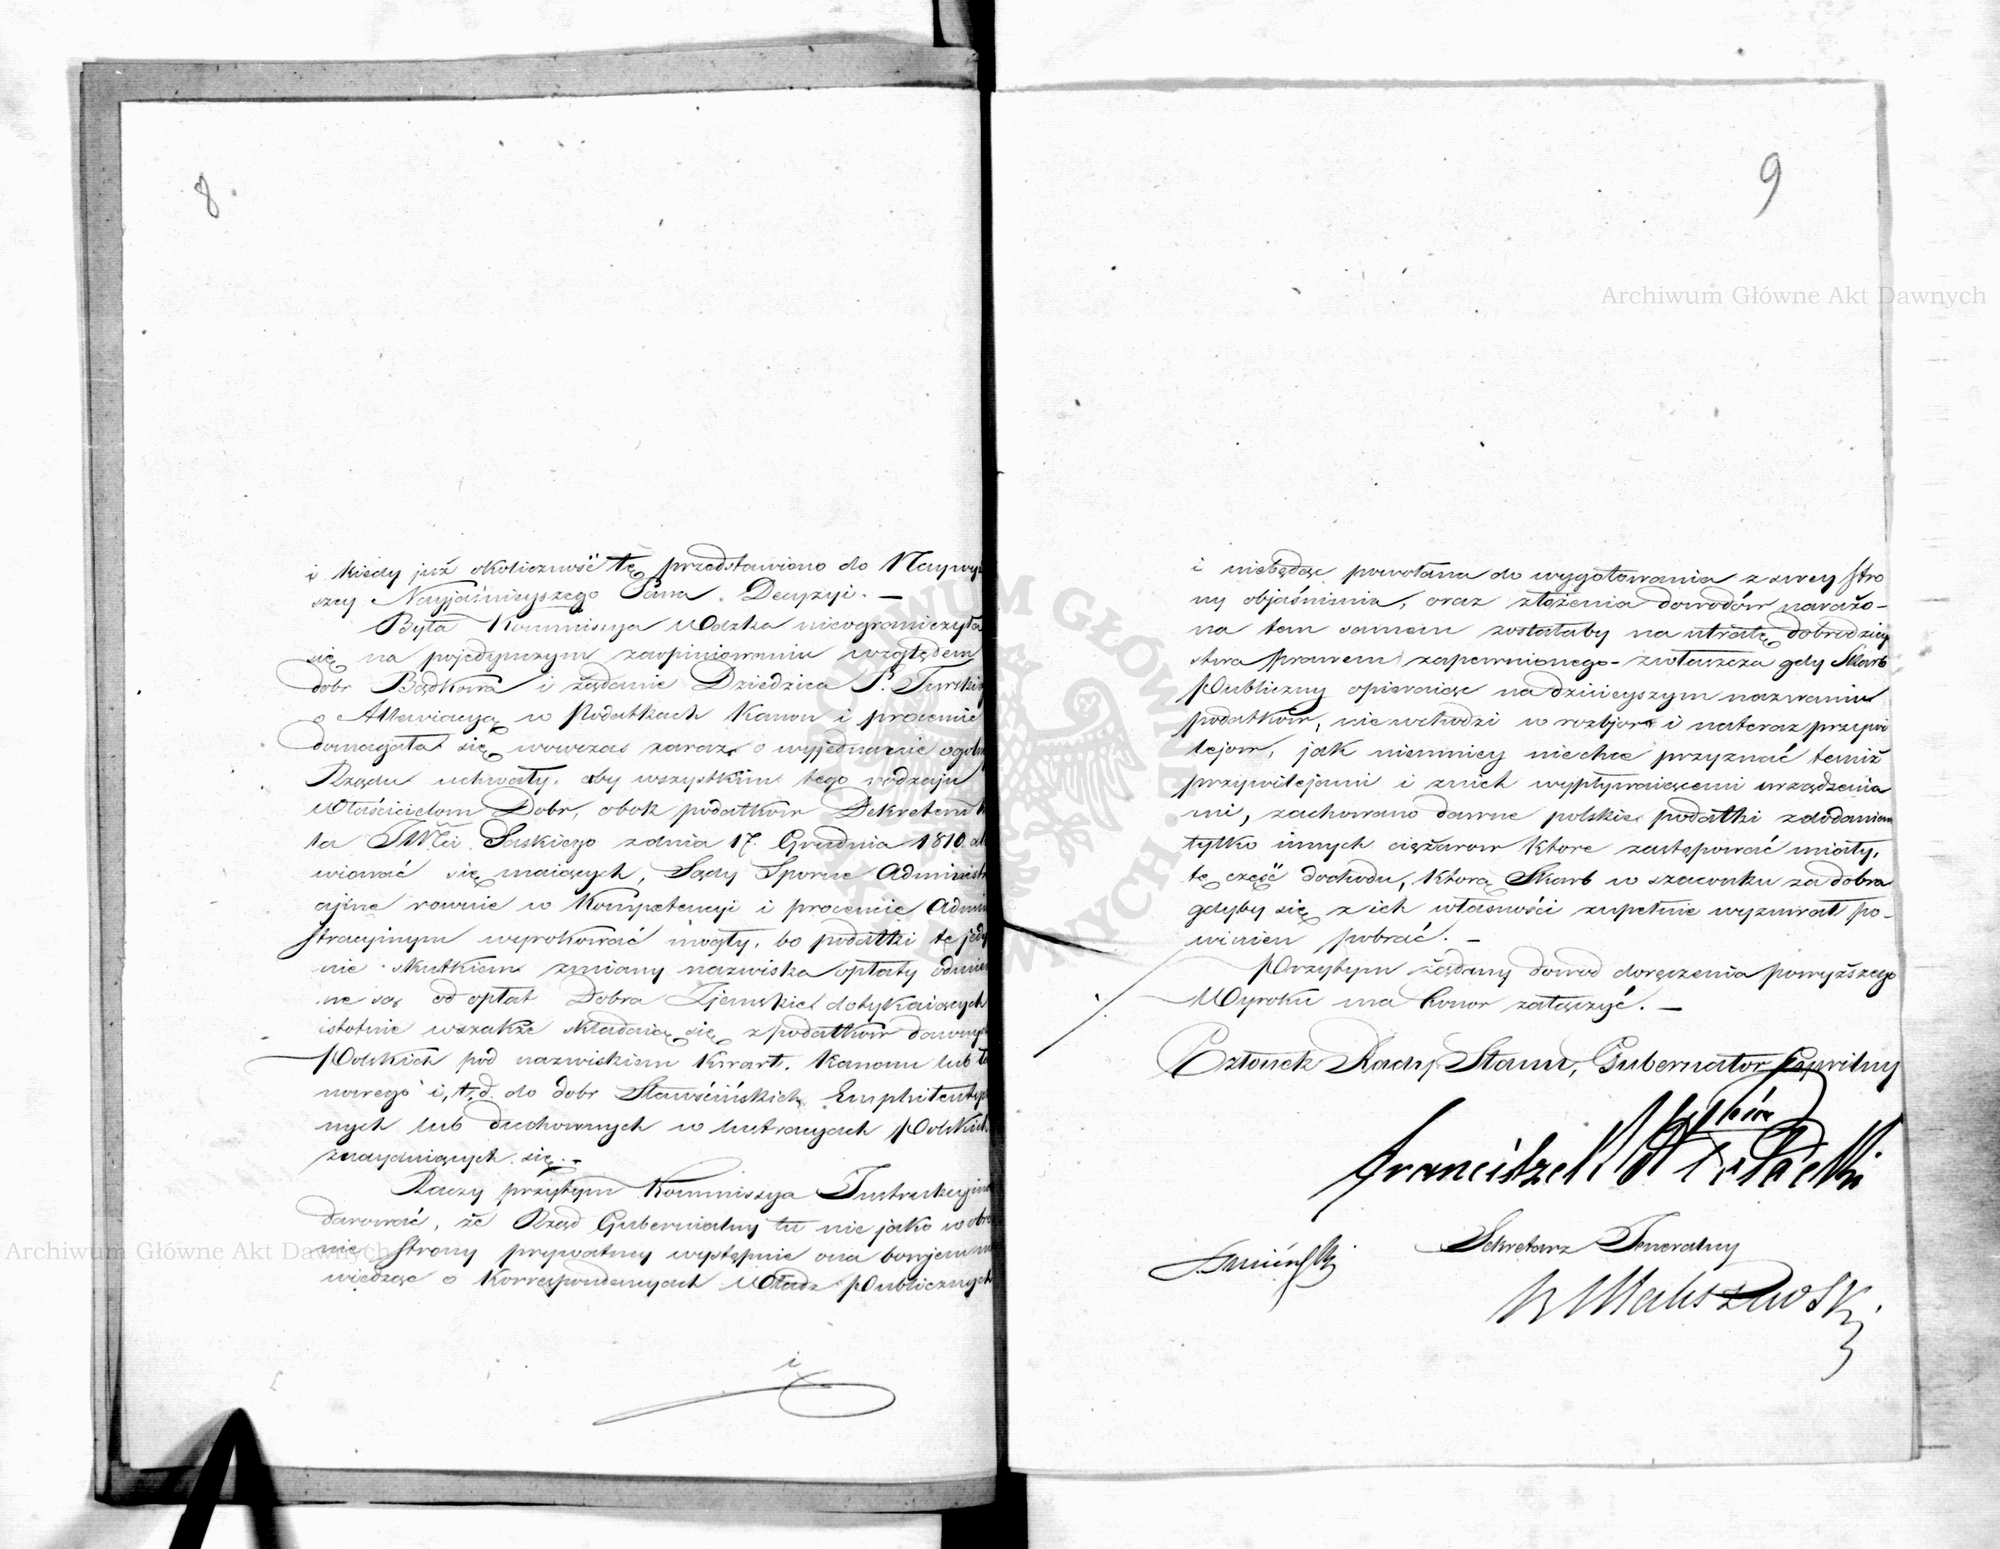 8
i kiedy już okoliczność tę przedstawiono do Naywyż
szey Nayjaśnieyszego Pana Decyzyi. —
Była Kommissya Wdzka nieograniczyła
się na pojedynczym zaopiniowaniu względem
dobr Bądkowa i żądanie Dziedzica P. Turski
o Allewiacyą w Podatkach Kanon i procencie
domagała się wowczas zaraz o wyjednanie ogoln
Rządu uchwały, aby wszystkim tego rodzaju
Właścicielom Dobr, obok podatkow Dekretem
ta Saskiego zdnia 17. Grudnia 1810 al
wiować się maiących, Sądy Sporne Administr
cyjne rownie w Kompetencyi i procencie Admini
stracyjnym wyrokować mogły, bo podatki te jedy
nie skutkiem zmiany nazwiska opłaty odmien
ne są od opłat Dobra Ziemskie dotykaiących
istotnie wszakże składaią się z podatkow dawnych
Polskich pod nazwiskiem Kwart, Kanonu lub
nowego i, t, d. do dobr Starościńskich Emphiteuty
nych lub duchownych w lustracyach Polskich
znayduiących się. —
Raczy przytym Kommissya Instrukcyina
darować, że Rząd Gubernialny tu nie jako w obro
nie strony prywatney występuie ona bowiem nie
wiedząc o Korrespondencyach Władz Publicznych
i
9
i niebędąc powołana do wygotowania z swey stro
ny objaśnienia, oraz złożenia dowodów narażo-
na tem samem zostałaby na utratę dobrodziey
stwa prawem zapewnionego - zwłaszcza gdy Skarb
Publiczny opieraiąc na dzisieyszym nazwaniu
podatków, nie wchodzi w rozbjor i nateraz przywi
lejow, jak niemniey niechce przyznać temiż
przywilejami i znich wypływaiącemi urządzenia
mi, zachowano dawne polskie podatki zdodaniem
tylko innych ciężarow ktore zastępować miały,
tę część dochodu, ktorą Skarb w szacunku za dobra
gdyby się z ich własności zupełnie wyzuwał po-
winien pobrać. —
Przytym żądany dowod doręczenia powyższego
Wyroku ma honor załączyć. —
Członek Rady Stanu, Gubernator Cywilny
Franciszek
Sekretarz Jeneralny
Maliszewski
Archiwum Główne Akt Dawnych
Archiwum Główne Akt Dawnych
ARCHIWUM GŁÓWNE AKT DAWNYCH